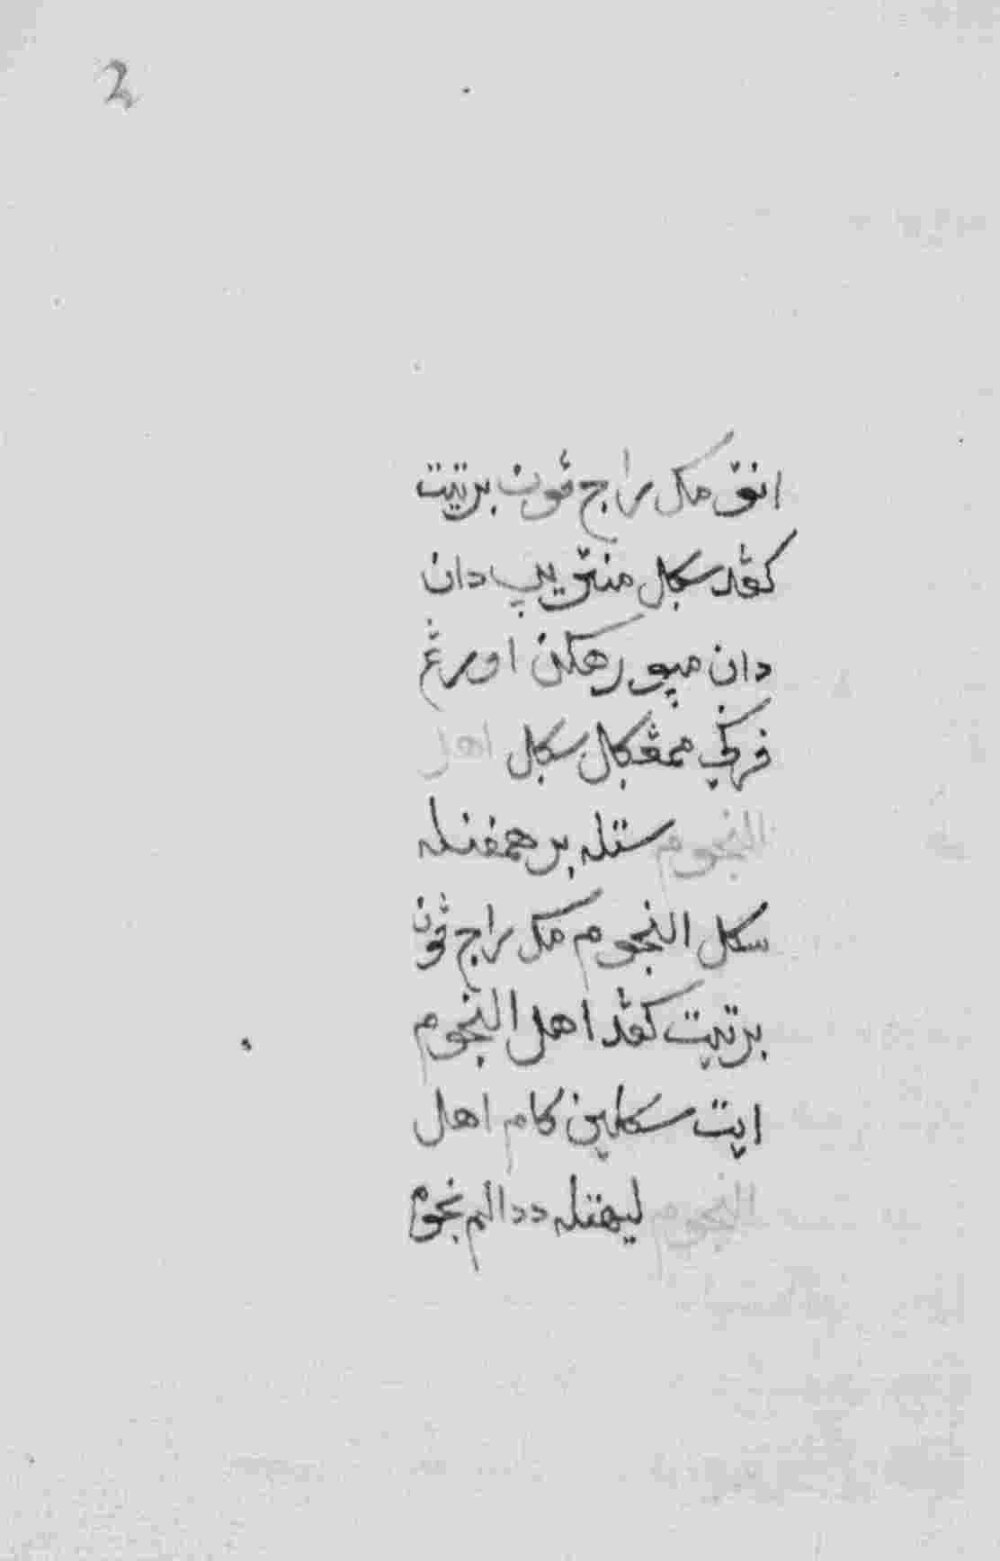 2
انق مک راج ڤون برتيت
کڤد سکل منتري يڠ دان
دان مپورهکن اورڠ
فرکي ممڠکل سکل اهل
النجوم ستله برهمفنله
سکل النجوم مک راج ڤون
برتيت کڤد اهل النجوم
ايت سکلين کامو اهل
النجوم ليهتله ددالم نجوم